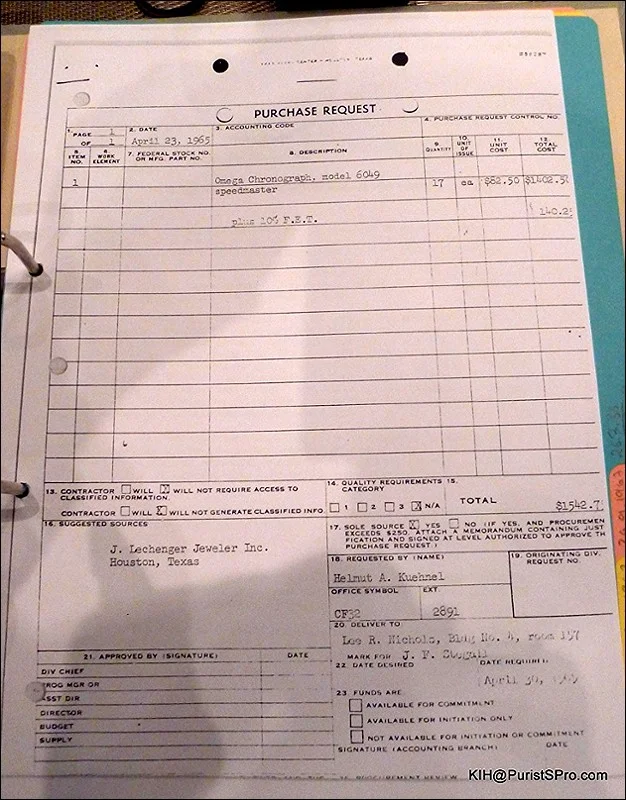 PURCHASE REQUEST
1. PAGE 1 OF 1
2. DATE
April 23, 1965
3. ACCOUNTING CODE
4. PURCHASE REQUEST CONTROL NO.
5. ITEM NO.
6. WORK ELEMENT
7. FEDERAL STOCK NO. OR MFG. PART NO.
8. DESCRIPTION
9. QUANTITY
10. UNIT OF ISSUE
11. UNIT COST
12. TOTAL COST
1 Omega Chronograph, model 6049 17 ea $82.50 $1402.50
speedmaster
plus 10% F.E.T. 140.2
13. CONTRACTOR WILL X WILL NOT REQUIRE ACCESS TO
CLASSIFIED INFORMATION.
CONTRACTOR WILL X WILL NOT GENERATE CLASSIFIED INFO.
14. QUALITY REQUIREMENTS
CATEGORY
1 2 3 X N/A
15.
TOTAL $1542.7
16. SUGGESTED SOURCES
J. Lechenger Jeweler Inc.
Houston, Texas
17. SOLE SOURCE X YES NO (IF YES, AND PROCUREMEN
EXCEEDS $250, ATTACH A MEMORANDUM CONTAINING JUST
FICATION AND SIGNED AT LEVEL AUTHORIZED TO APPROVE TH
PURCHASE REQUEST.)
18. REQUESTED BY (NAME)
Helmut A. Kuehnel
19. ORIGINATING DIV.
REQUEST NO.
OFFICE SYMBOL EXT.
CF32 2891
20. DELIVER TO
Lee R. Nichols, Bldg No. 4, room 157
MARK FOR J. F.
21. APPROVED BY (SIGNATURE) DATE
DIV CHIEF
PROG MGR OR
ASST DIR
DIRECTOR
BUDGET
SUPPLY
22. DATE DESIRED DATE REQUIRED
April 30, 1965
23 FUNDS ARE
AVAILABLE FOR COMMITMENT
AVAILABLE FOR INITIATION ONLY
NOT AVAILABLE FOR INITIATION OR COMMITMENT
SIGNATURE (ACCOUNTING BRANCH) DATE
PROCUREMENT REVIEW
KIH@PuristSPro.com